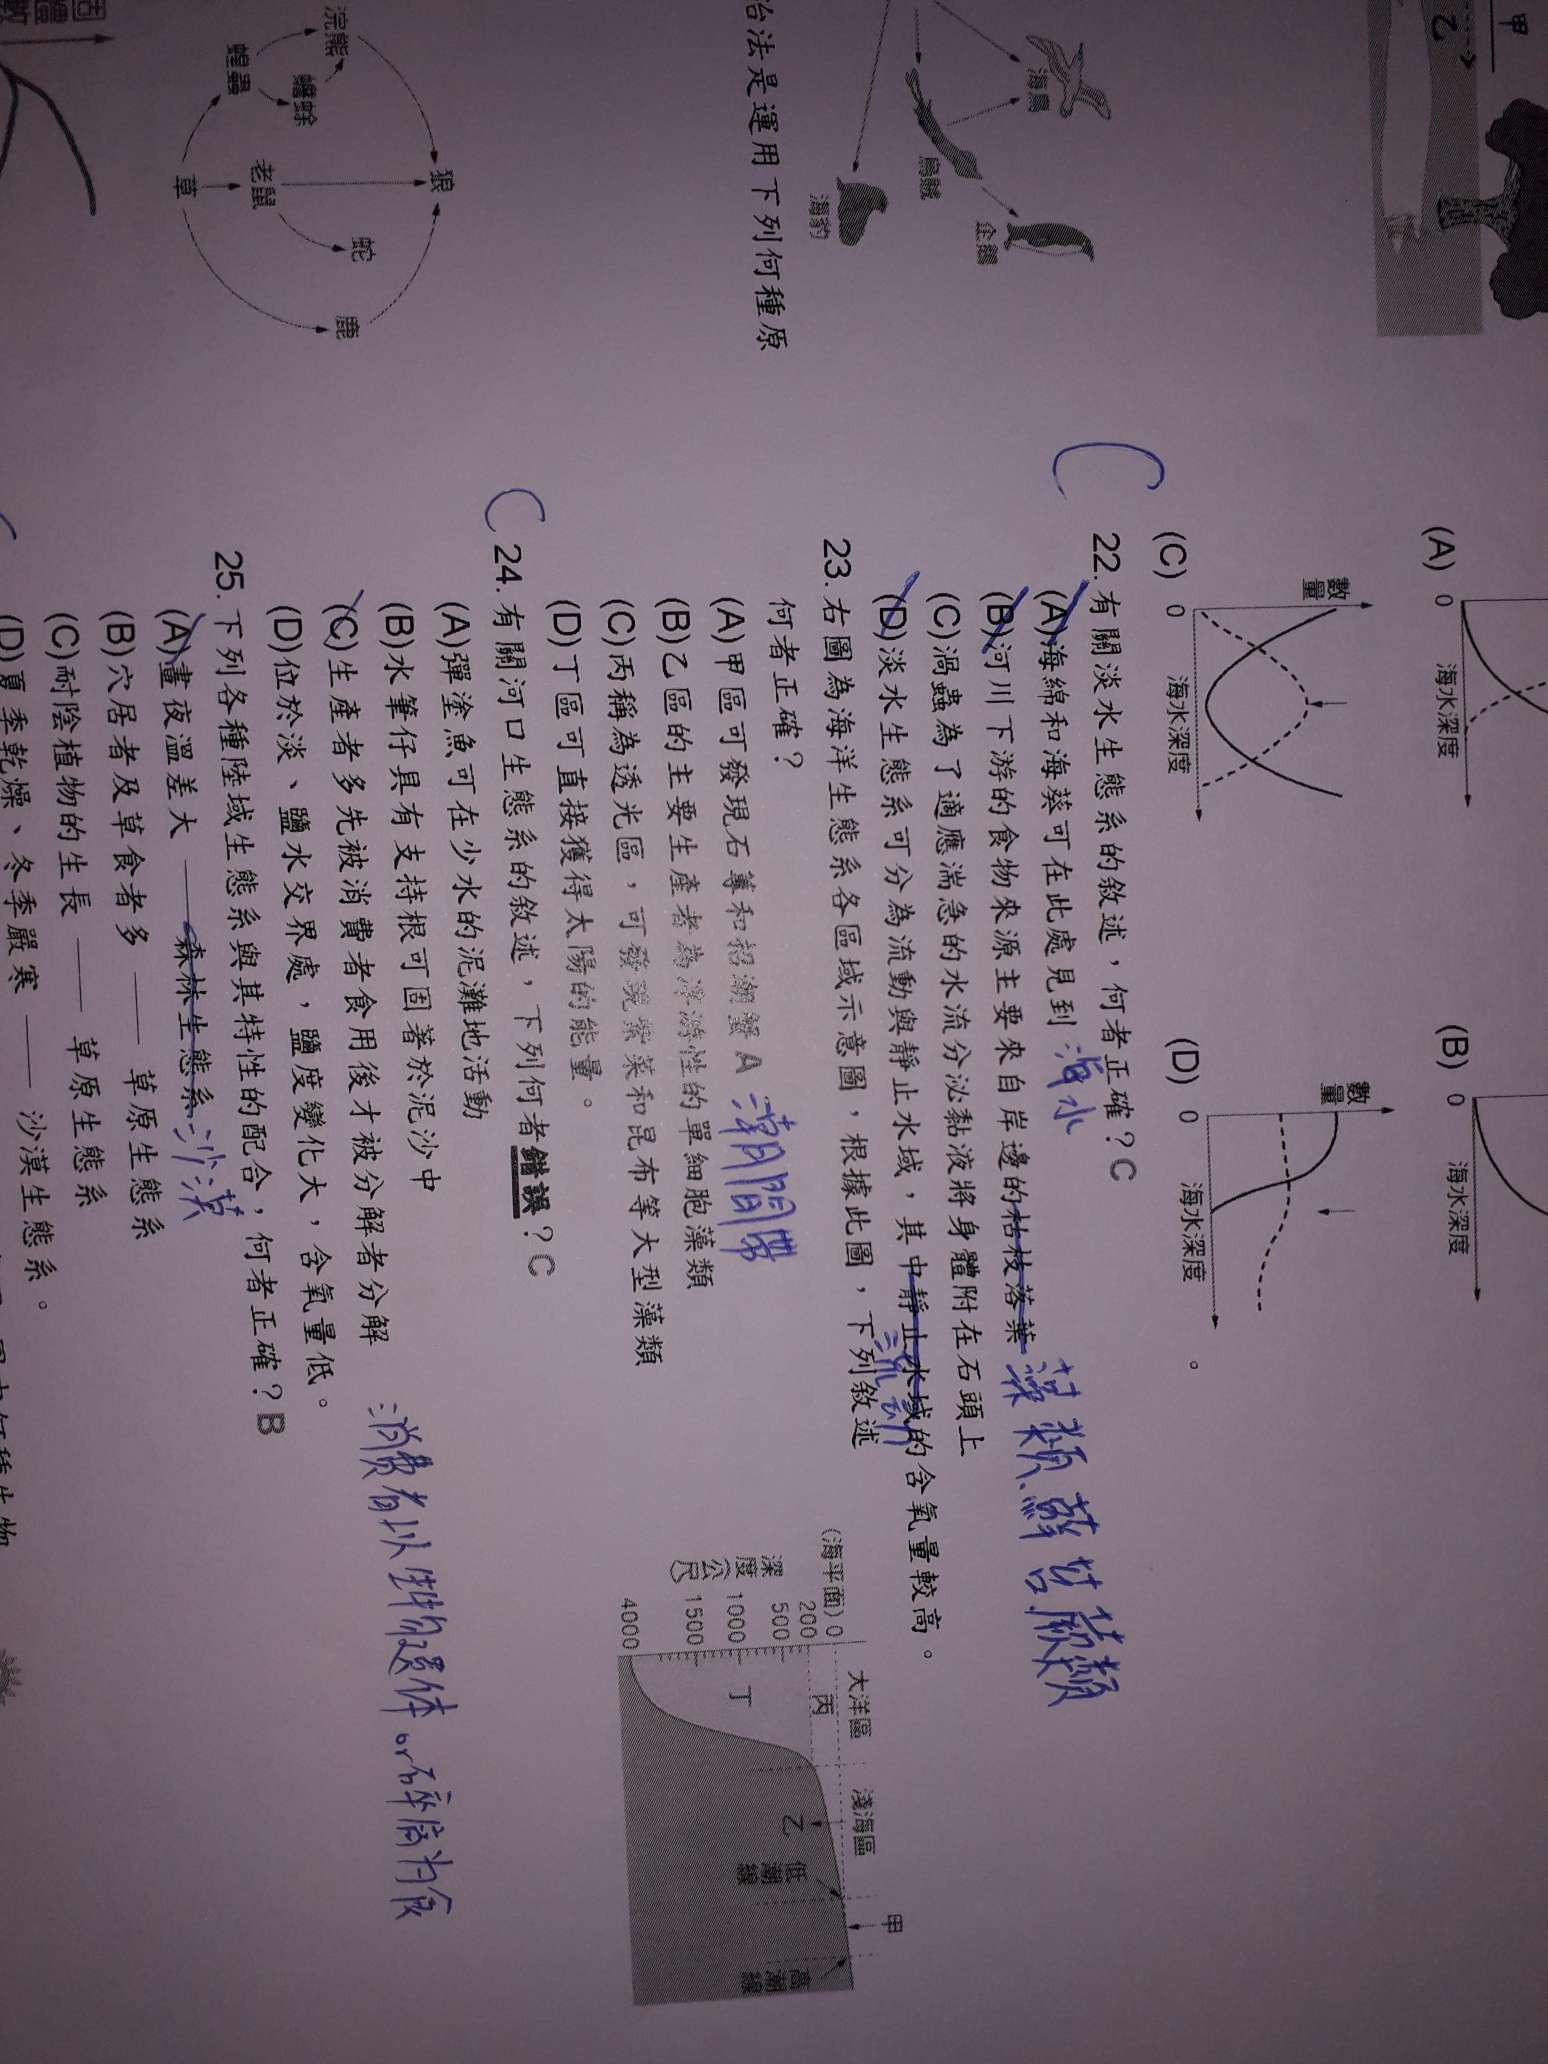 甲
乙
海鳥
烏賊
企鵝
海豹
治法是運用下列何種原
狼
浣熊
蟾蜍
蝗蟲
老鼠
蛇
鹿
草
(A)
0
海水深度
(B)
0
海水深度
(C)
數量
0
海水深度
(D)
數量
0
海水深度
。
C
22.有關淡水生態系的敘述，何者正確？C
(A)海綿和海葵可在此處見到 海水
(B)河川下游的食物來源主要來自岸邊的枯枝落葉 藻類、蘚苔、蕨類
(C)渦蟲為了適應湍急的水流分泌黏液將身體附在石頭上
(D)淡水生態系可分為流動與靜止水域，其中靜止水域的含氧量較高。
流動
23.右圖為海洋生態系各區域示意圖，根據此圖，下列敘述
何者正確？
(A)甲區可發現石蓴和招潮蟹 A 潮間帶
(B)乙區的主要生產者為浮游性的單細胞藻類
(C)丙稱為透光區，可發現紫菜和昆布等大型藻類
(D)丁區可直接獲得太陽的能量。
大洋區
淺海區
甲
(海平面) 0
200
500
1000
1500
4000
深度(公尺)
丙
丁
乙
低潮線
高潮線
C
24.有關河口生態系的敘述，下列何者錯誤？C
(A)彈塗魚可在少水的泥灘地活動
(B)水筆仔具有支持根可固著於泥沙中
(C)生產者多先被消費者食用後才被分解者分解
消費者以生物遺體or碎屑為食
(D)位於淡、鹽水交界處，鹽度變化大，含氧量低。
25.下列各種陸域生態系與其特性的配合，何者正確？B
(A)晝夜溫差大 —— 森林生態系 沙漠
(B)穴居者及草食者多 —— 草原生態系
(C)耐陰植物的生長 —— 草原生態系
(D)夏季乾燥、冬季嚴寒 —— 沙漠生態系。